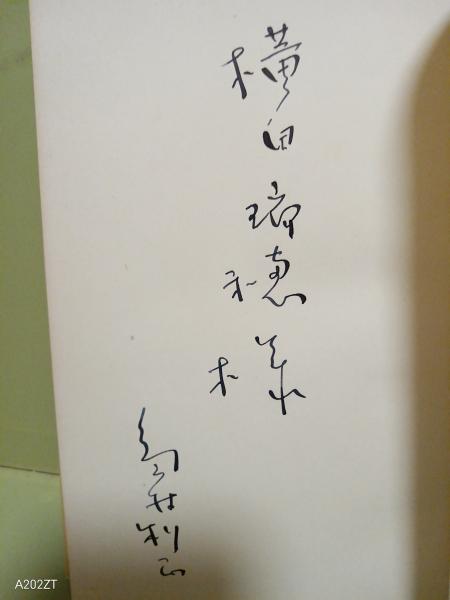 横田瑞穂様
島村利正
A202ZT